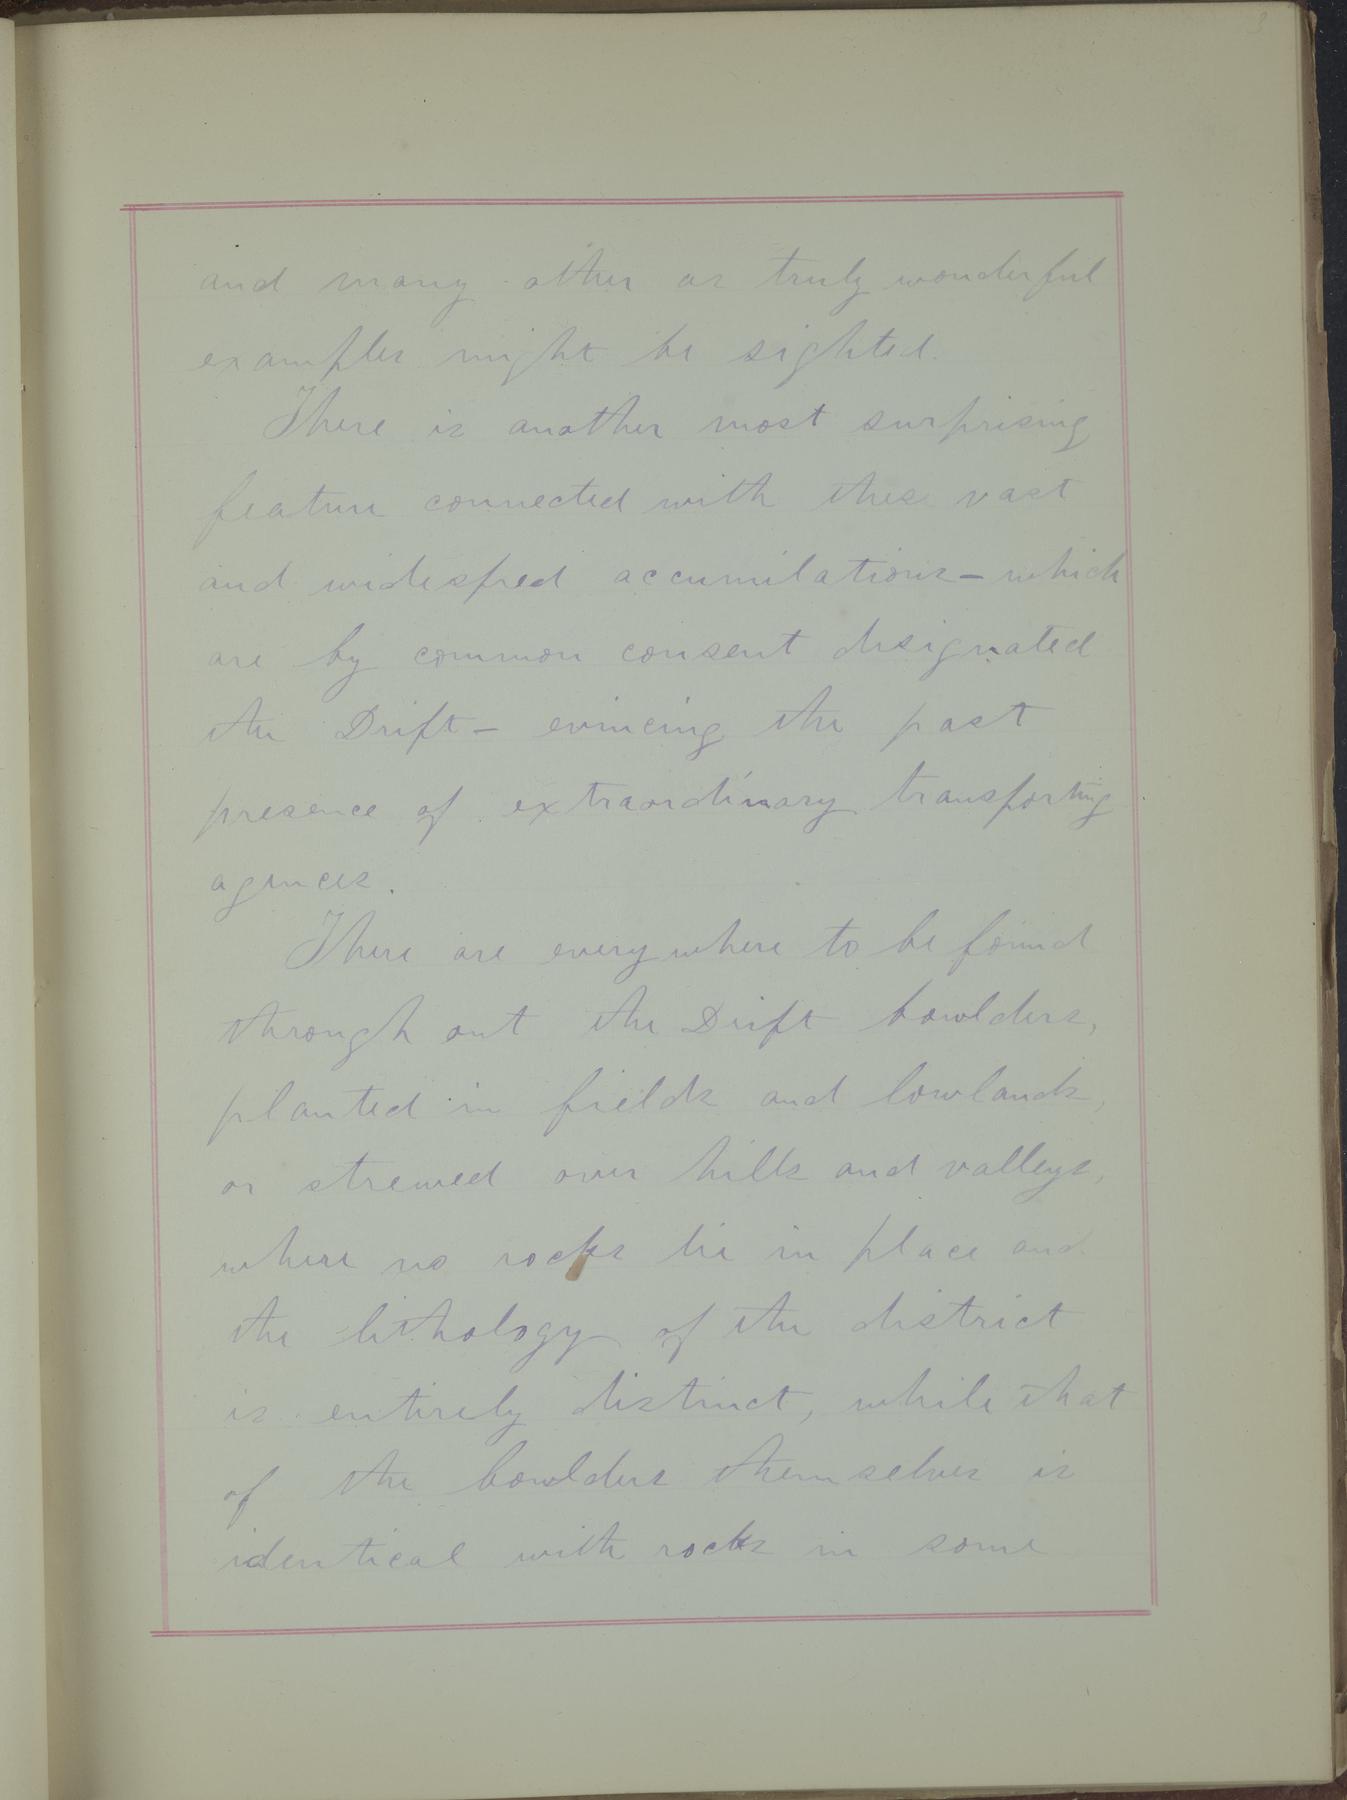 3
and many other as truly wonderful
examples might be sighted.
There is another most surprising
feature connected with these vast
and widespred accumilations - which
are by common consent designated
the Drift - evincing the past
presence of extraordinary transporting
agences.
There are everywhere to be found
through out the Drift bowlders,
planted in fields and lowlands,
or strewed over hills and valleys,
where no rocks lie in place and
the lithology of the district
is entirely distinct, while that
of the bowlders themselves is
identical with rocks in some